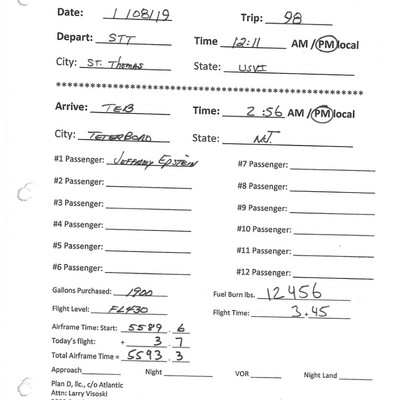 Date: 1/08/19 Trip: 98
Depart: STT Time 12:11 AM / PM local
City: ST. THOMAS State: USVI
Arrive: TEB Time: 2:56 AM / PM local
City: TETERBORO State: NJ.
#1 Passenger: JEFFREY EPSTEIN #7 Passenger:
#2 Passenger: #8 Passenger:
#3 Passenger: #9 Passenger:
#4 Passenger: #10 Passenger:
#5 Passenger: #11 Passenger:
#6 Passenger: #12 Passenger:
Gallons Purchased: 1900 Fuel Burn lbs. 12456
Flight Level: FL430 Flight Time: 3.45
Airframe Time: Start: 5589.6
Today's flight: + 3.7
Total Airframe Time = 5593.3
Approach Night VOR Night Land
Plan D, llc., c/o Atlantic
Attn: Larry Visoski